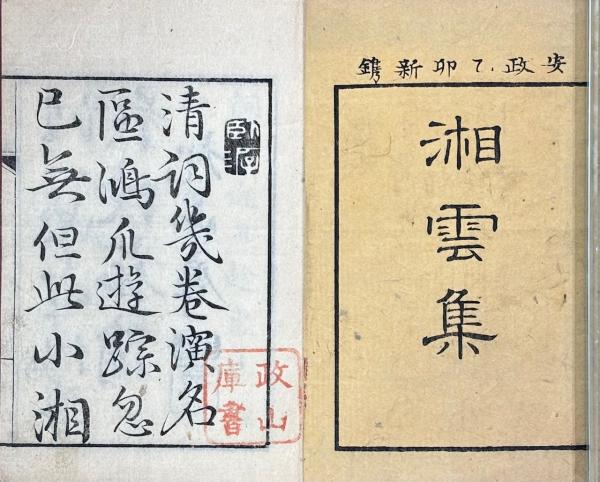 安政乙卯新鐫
湘雲集
清詞幾卷演名
區鴻爪遊踪忽
已無但此小湘
政山
庫書